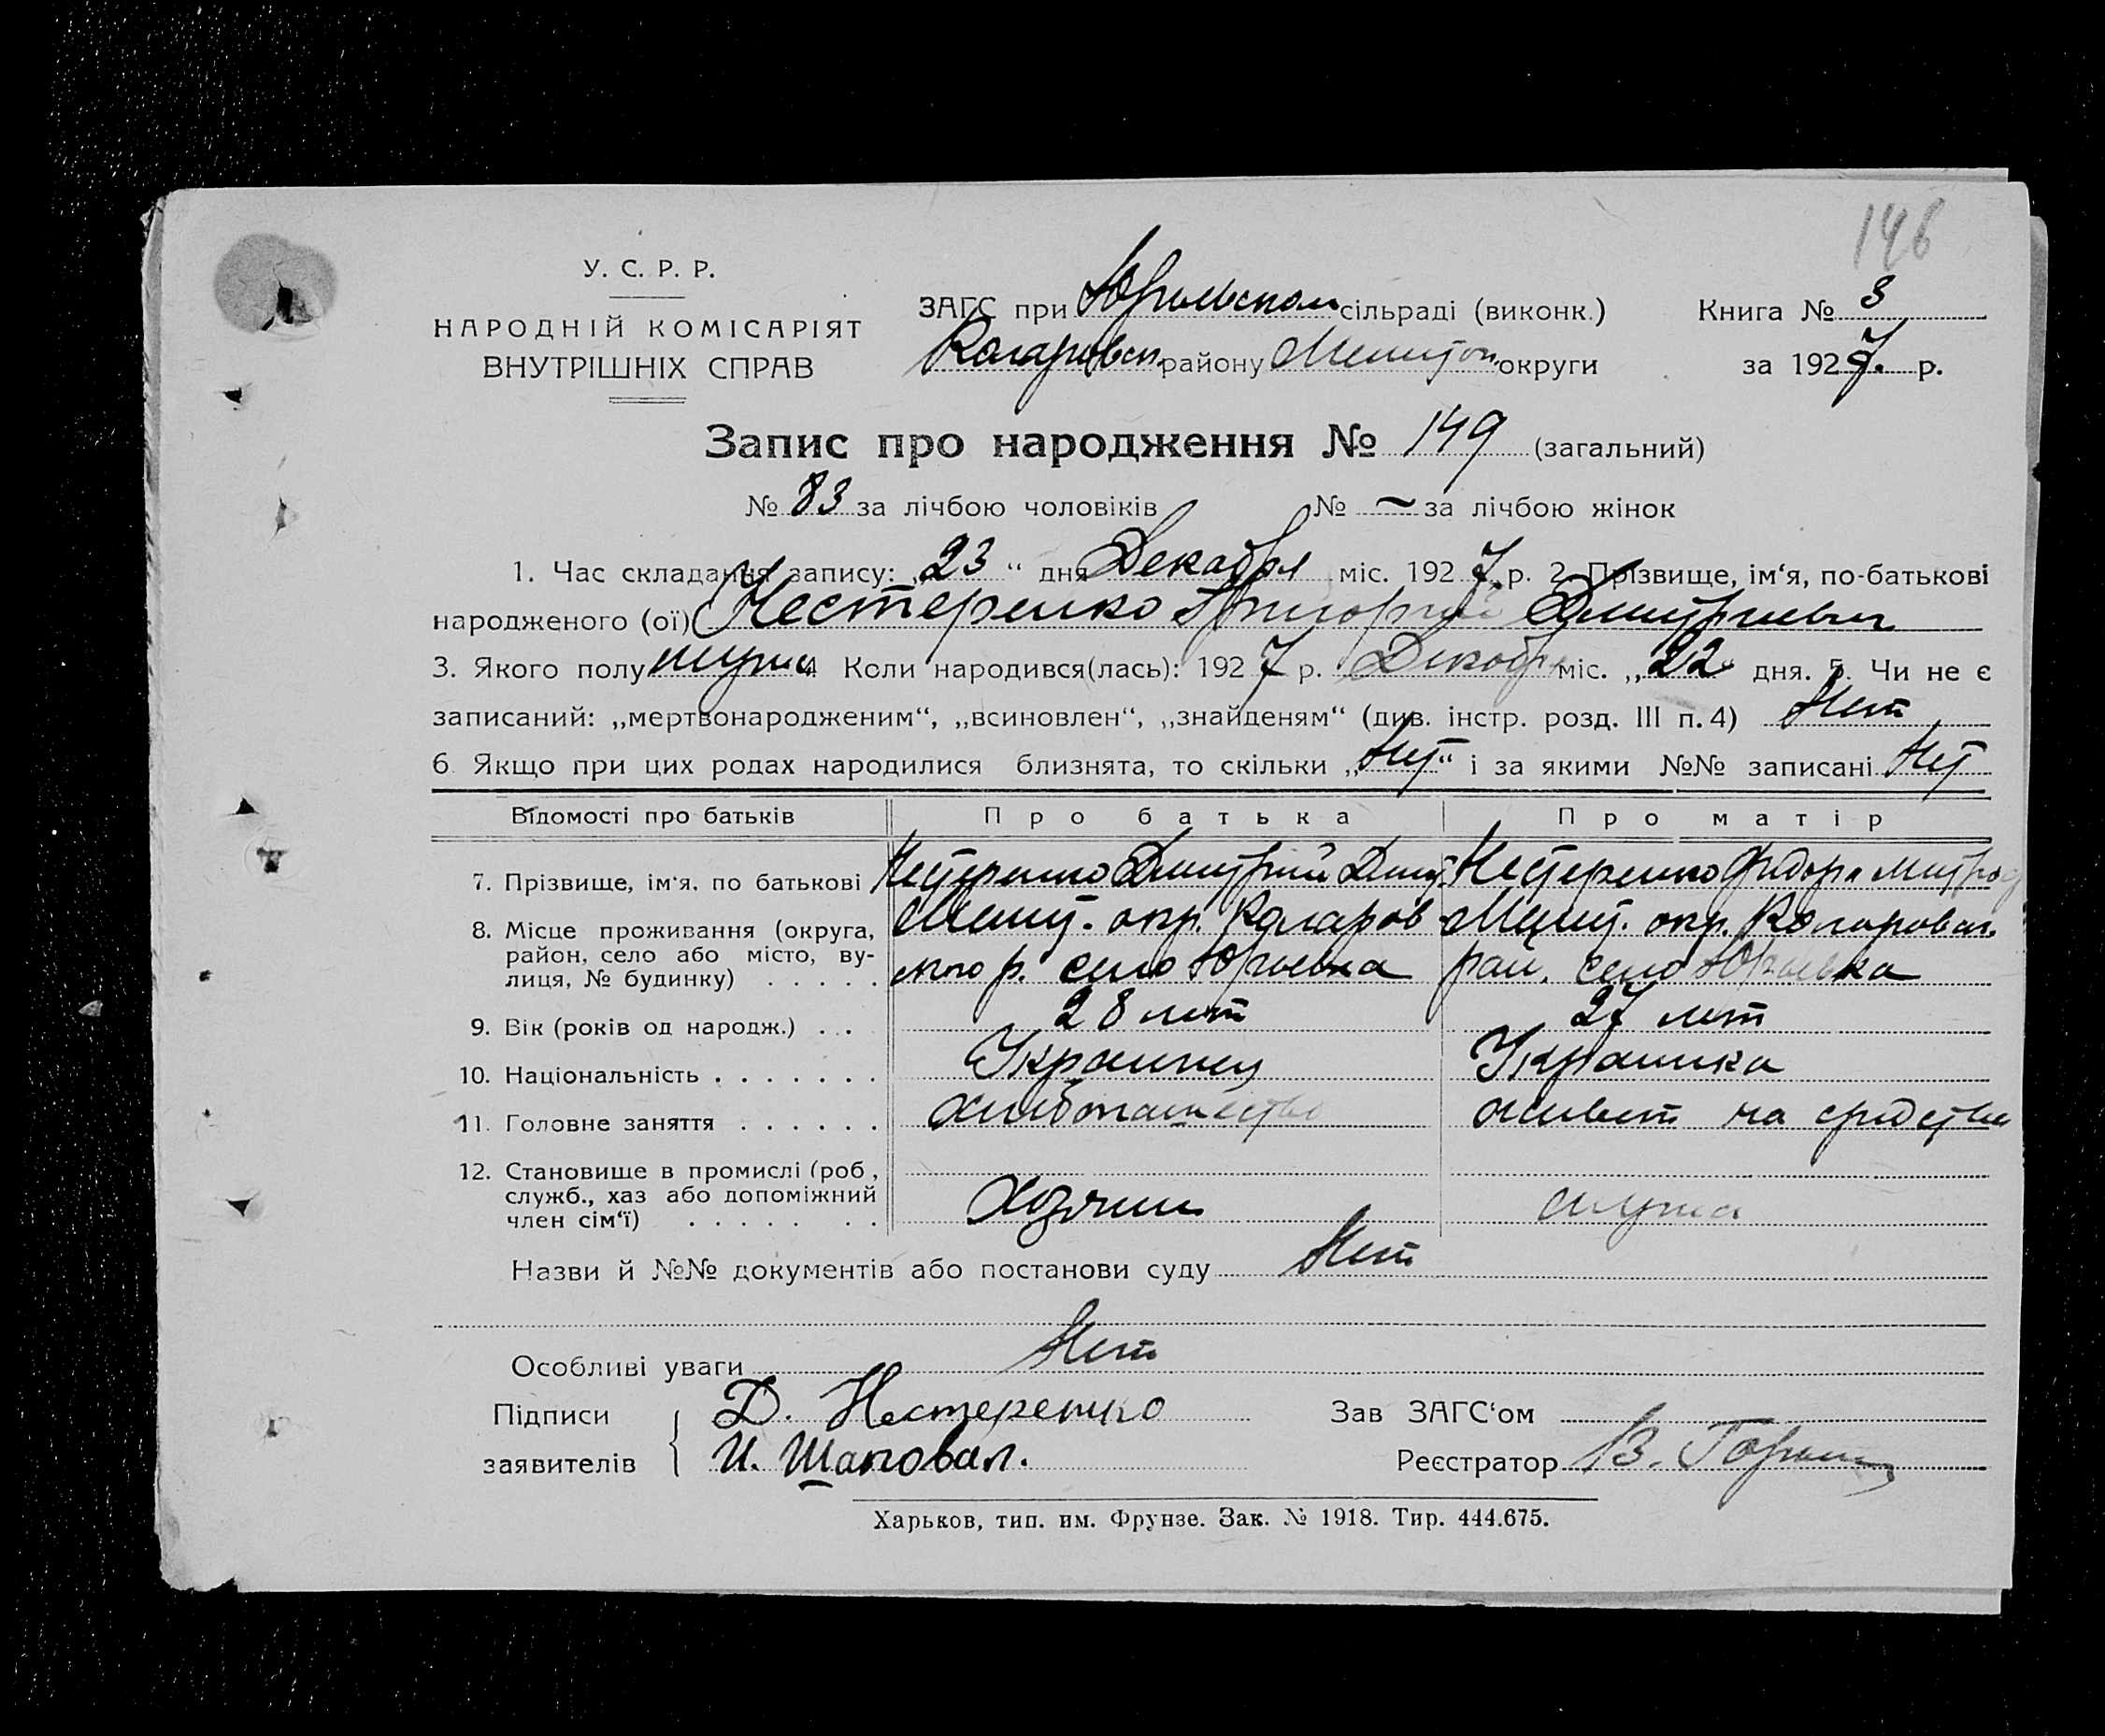 146
У. С. Р. Р.
НАРОДНІЙ КОМІСАРІЯТ
ВНУТРІШНІХ СПРАВ
ЗАГС при Юрьевском сільраді (виконк.)
Коларовск. району Мелитоп. округи
Книга № 3
за 1927. р.
Запис про народження № 149 (загальний)
№ 83 за лічбою чоловіків № ~ за лічбою жінок
1. Час складання запису: „23“ дня Декабря міс. 1927. р. 2. Прізвище, ім‘я, по-батькові
народженого (ої) Нестеренко Григорий Дмитриевич
3. Якого полу мужс. 4 Коли народився(лась): 1927 р. Декабр міс. „22“ дня. 5. Чи не є
записаний: „мертвонародженим“, „всиновлен“, „знайденям“ (див. інстр. розд. III п. 4) Нет
6 Якщо при цих родах народилися близнята, то скільки „Нет“ і за якими №№ записані Нет
Відомості про батьків Про батька Про матір
7. Прізвище, ім‘я, по батькові Нестеренко Дмитрий Дмит. Нестеренко Федора Митроф
8. Місце проживання (округа, район, село або місто, вулиця, № будинку) . . . . .
Мелит. окр. Коларов Мелит. окр. Коларовск.
ского р. село Юрьевка рай. село Юрьевка
9. Вік (років од народж.) . . 28 лет 27 лет
10. Національність . . . . . . . Украинец Украинка
11. Головне заняття . . . . . . хлебопашество живет на средства
12. Становище в промислі (роб., служб., хаз або допоміжний член сім‘ї) . . . . . . . .
Хозяин мужа
Назви й №№ документів або постанови суду Нет
Особливі уваги Нет
Підписи заявителів
Д. Нестеренко
И. Шаповал.
Зав ЗАГС‘ом
Реєстратор В.
Харьков, тип. им. Фрунзе. Зак. № 1918. Тир. 444.675.